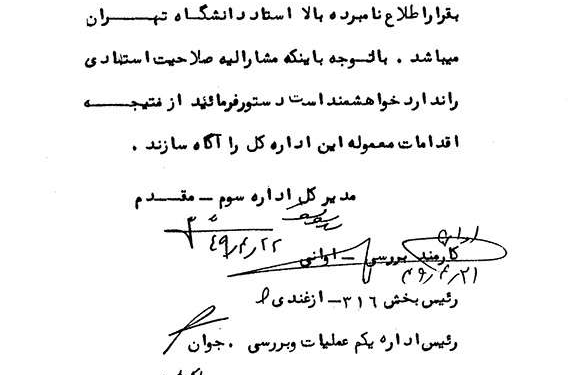 بقرار اطلاع نامبرده بالا استاد دانشگاه تهران
میباشد . باتوجه باینکه مشارالیه صلاحیت استادی
را ندارد خواهشمند است دستور فرمائید از نتیجه
اقدامات معموله این اداره کل را آگاه سازند .
مدیر کل اداره سوم – مقدم
۴۹٫۴٫۲۲
کارمند بررسی – اوانی
۴۹٫۴٫۲۱
رئیس بخش ۳۱۶ – ازغندی
رئیس اداره یکم عملیات وبررسی . جوان